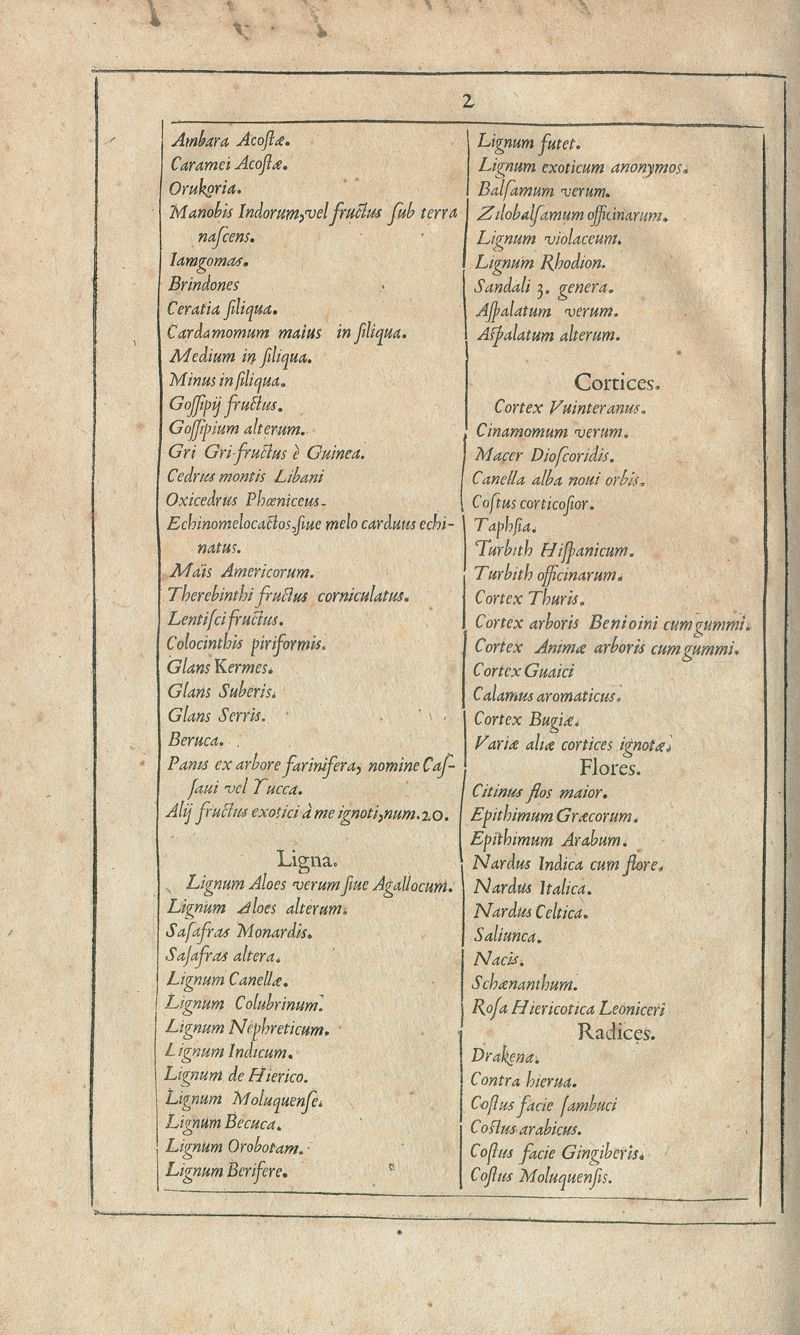 2
Ambara Acoſtæ.
Caramei Acoſtæ.
Orukoria.
Manobis Indorum, vel fructus ſub terra
naſcens.
Iamgomas.
Brindones
Ceratia ſiliqua.
Cardamomum maius in ſiliqua.
Medium in ſiliqua.
Minus in ſiliqua.
Goſſipij fructus.
Goſſipium alterum.
Gri Gri fructus è Guinea.
Cedrus montis Libani
Oxicedrus Phœniceus.
Echinomelocactos, ſiue melo carduus echi-
natus.
Maïs Americorum.
Therebinthi fructus corniculatus.
Lentiſci fructus.
Colocinthis piriformis.
Glans Kermes.
Glans Suberis.
Glans Serris.
Beruca.
Panis ex arbore farinifera, nomine Caſ-
ſaui vel Yucca.
Alij fructus exotici à me ignoti, num. 20.
Ligna.
Lignum Aloes verum ſiue Agallocum.
Lignum Aloes alterum.
Saſafras Monardis.
Saſafras altera.
Lignum Canellæ.
Lignum Colubrinum.
Lignum Nephreticum.
Lignum Indicum.
Lignum de Hierico.
Lignum Moluquenſe.
Lignum Becuca.
Lignum Orobotam.
Lignum Beriſere.
Lignum futet.
Lignum exoticum anonymos.
Balſamum verum.
Zilobalſamum officinarum.
Lignum violaceum.
Lignum Rhodion.
Sandali 3. genera.
Aſpalatum verum.
Aſpalatum alterum.
Cortices.
Cortex Vuinteranus.
Cinamomum verum.
Macer Dioſcoridis.
Canella alba noui orbis.
Coſtus corticoſior.
Taphſia.
Turbith Hiſpanicum.
Turbith officinarum.
Cortex Thuris.
Cortex arboris Benioini cum gummi.
Cortex Animæ arboris cum gummi.
Cortex Guaici
Calamus aromaticus.
Cortex Bugiæ.
Variæ aliæ cortices ignotæ.
Flores.
Citinus flos maior.
Epithimum Græcorum.
Epithimum Arabum.
Nardus Indica cum flore.
Nardus Italica.
Nardus Celtica.
Saliunca.
Nacis.
Schænanthum.
Roſa Hiericotica Leoniceri
Radices.
Drakena.
Contra hierua.
Coſtus facie ſambuci
Coſtus arabicus.
Coſtus facie Gingiberis.
Coſtus Moluquenſis.